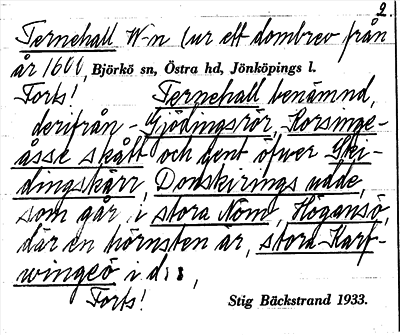 2.
Ternehall W-n (ur ett dombrev från
år 1600, Björkö sn, Östra hd, Jönköpings l.
Forts! Ternehall benämnd,
derifrån - Gjödingsrör, Korsmge-
åsse skått och gent öfwer Ski-
dingskärr, Donskirings udde,
som går i stora Nom, Högansö,
där en hörnsten är, stora Karf-
wingeö i d:s,
Forts! Stig Bäckstrand 1933.